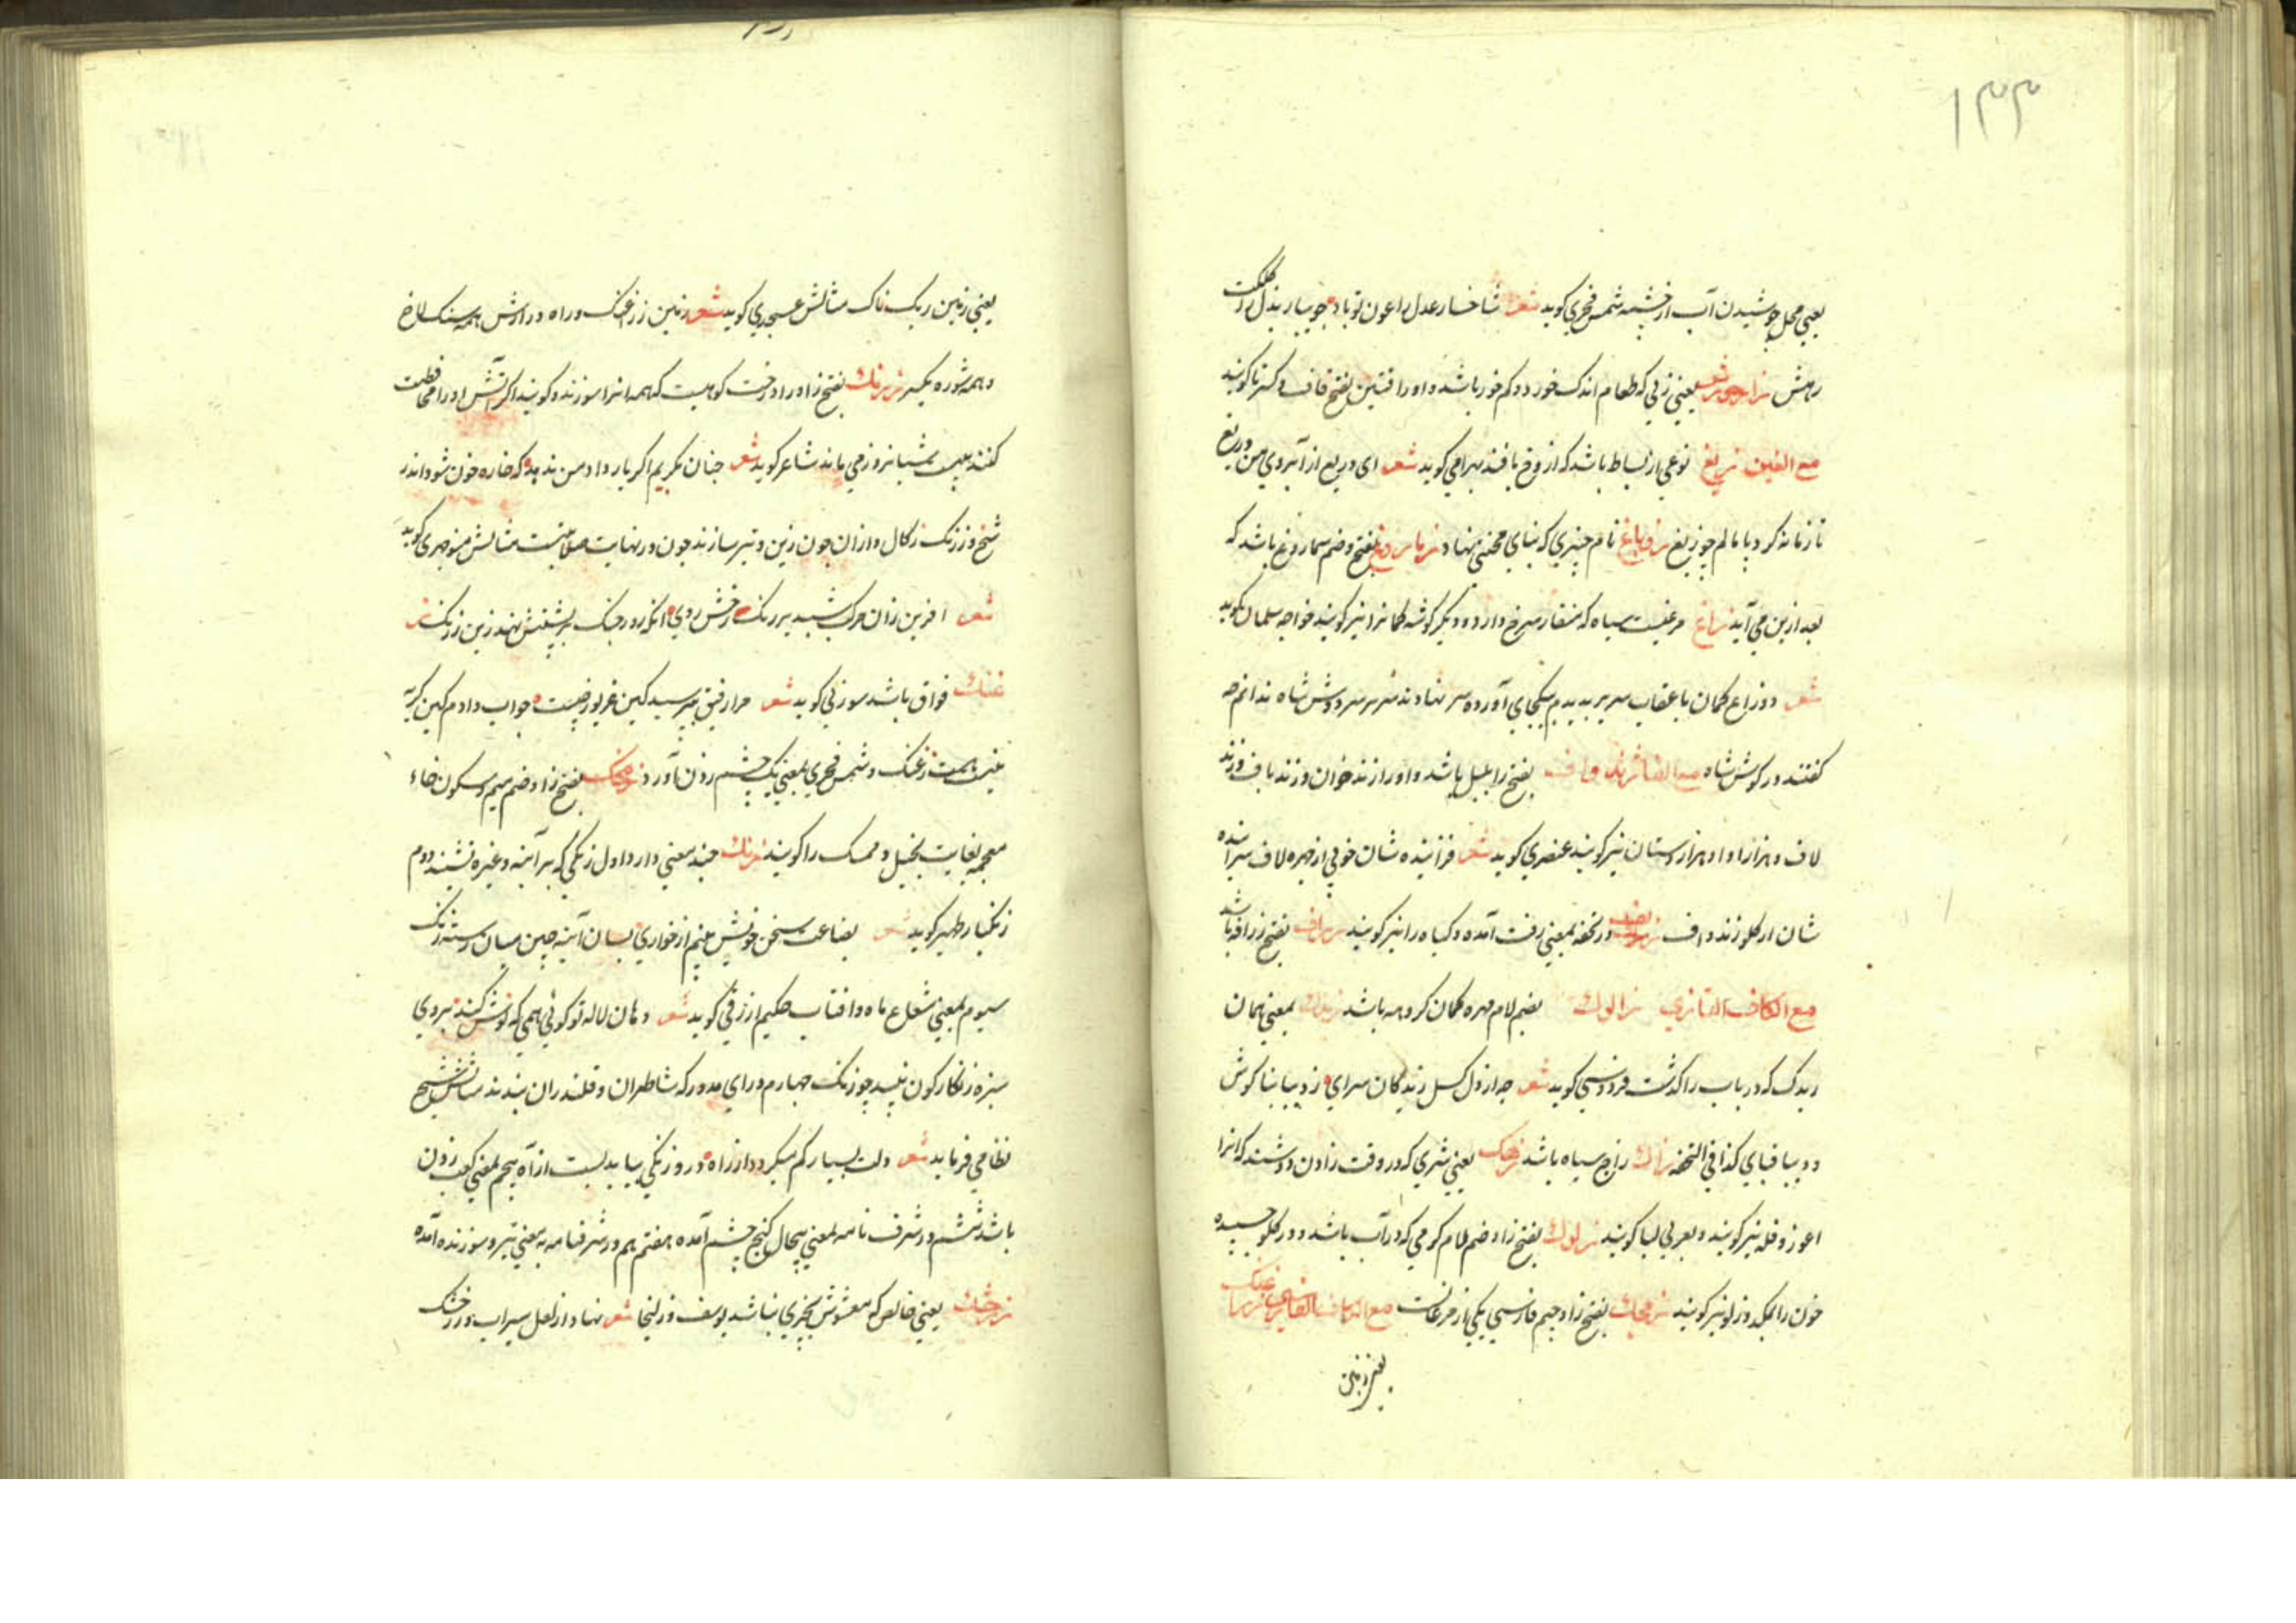 ۱۳۳
یعنی محل جوشیدن آب از چشمه شمس فخری کوید شعر شاخسار عدل را عون تو باد جویبار بذل را کلکت
رهش یعنی زنی که طعام اندک خورد و کم خور باشد و او را قتین بفتح قاف و کسر تا کویند
مع الغین زیغ نوعی از بساط باشد که از دوخ بافند بهرامی کوید شعر ای دریغ از آبروی من دریغ
تا زمانه کرد پا مالم چو زیغ نام چیزی که بنای محنتی نهاد بفتح و ضم سماروغ باشد که
بعد ازین می آید زاغ مرغیست سیاه که منقار سرخ دارد و دیکر کوشه کمانرا نیز کویند خواجه سلمان کوید
شعر دو زاغ کمان با عقاب سه پر بدیدم بیکجای آورده سر نهادند سر بر سر دوش شاه ندانم چه
کفتند در کوش شاه مع الفا زند واف بفتح را بلبل باشد و او را زند خوان و زند باف و زند
لاف و هزار آوا و هزار دستان نیز کویند عنصری کوید شعر فزاینده شان خوبی از چهره لاف سراینده
شان از کلو زند واف در تحفه بمعنی زفت آمده و کیاه را نیز کویند زراف بفتح زرافه باشد
مع الکاف التازی زالوک بضم لام مهره کمان کروهه باشد بمعنی همان
ریدک که در باب را کذشت فردوسی کوید شعر چه از دل کسل زیدکان سرای ز دیبا بناکوش
و دیبا قبای کذا فی التحفه زاک زاج سیاه باشد زهک یعنی شیری که در وقت زادن دوشند که انرا
اغوز و فله نیز کویند و بعربی لبا کویند زلوک بفتح زا و ضم لام کرمی که در آب باشد و در کلو چسپیده
خون را بمکد و زلو نیز کویند زمجک بفتح زا و جیم فارسی یکی از مرغانست مع الکاف الفارسی زغنک
یعنی زمین
یعنی زمین ریک ناک مثالش عسجدی کوید شعر زمین زراغنک و راه درازش همه سنک لاخ
و همه شوره یکسر زرنک بفتح زا و را درختست کوهیست که هیمه انرا سوزند و کویند اکر آتش او را محافظت
کنند بیست شبانروز می ماند شاعر کوید شعر چنان بکریم اکر یار داد من ندهد که خاره خون شود اندر
شخ و زرنک زکال و ازان چون زین و تیر سازند چون در نهایت صلابتست مثالش منوچهری کوید
شعر افرین زان مرکب شبدیز رنک رخش روی انکه روز جنک بر پشتش نهند زین زرنک ز
غنک فواق باشد سوزنی کوید شعر مرا رفیقی پرسید کین غریو ز چیست جواب دادم کین کریه
نیست هست زغنک و شمس فخری بمعنی یک چشم زدن آورده زمخک بفتح زا و ضم میم و سکون خاء
معجمه بغایت بخیل و ممسک را کویند زنک چند معنی دارد اول زنکی که بر آینه و غیره نشیند دوم
زنکبار ظهیر کوید شعر بضاعت سخن خویش بینم از خواری بسان آینه چین میان رسته زنک
سیوم بمعنی شعاع ماه و افتاب حکیم ازرقی کوید شعر دهان لاله تو کوئی همی که نوش کند بروی
سبزه زنکارکون نبید چو زنک چهارم درای مدور که شاطران و قلندران بندند مثالش شیخ
نظامی فرماید شعر دلت بسیار کم میکردد از راه درو زنکی بباید بست از آه پنجم بمعنی کعب زدن
باشد ششم در شرف نامه بمعنی پیخال کنج چشم آمده هفتم هم در شرفنامه بمعنی تیر و سوزنده آمده
زرخشک یعنی خالص که مغشوش بچیزی نباشد یوسف و زلیخا شعر نهاد از لعل سیراب و زر خشک